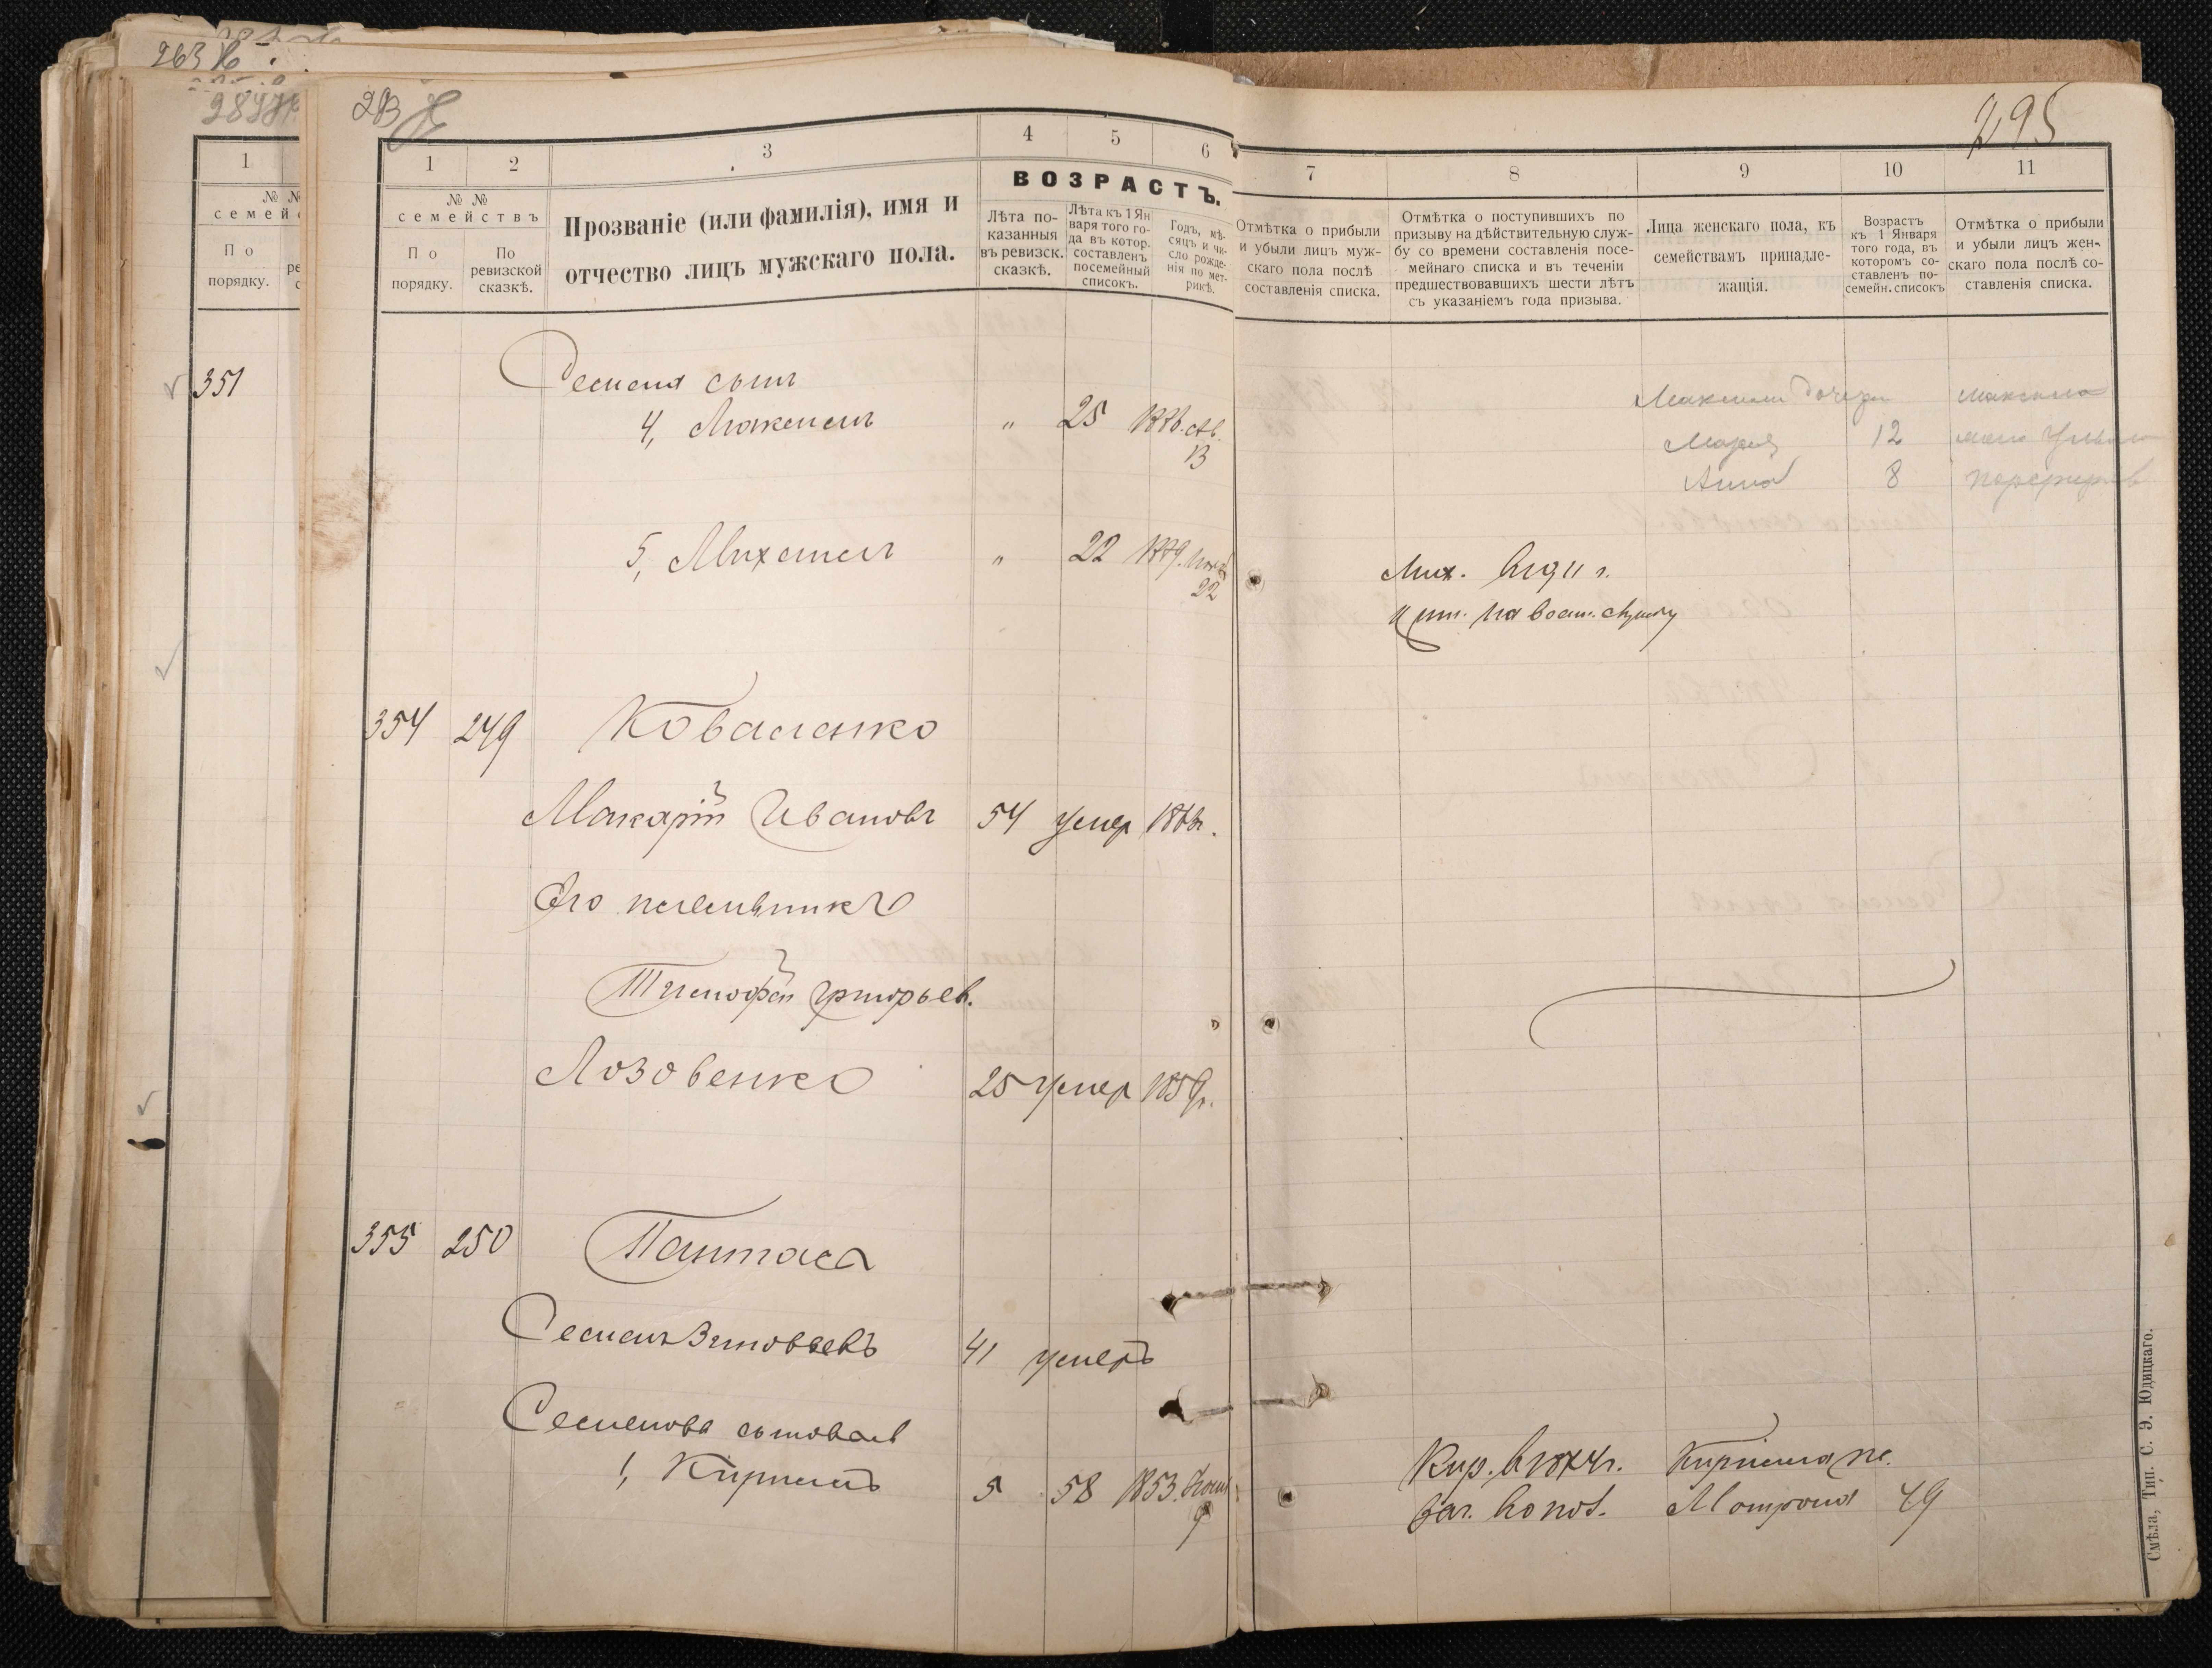 263
284
293
295
1
№ №
семейс
По
порядку.
351
1
2
3
4
5
6
7
8
9
10
11
№ №
семействъ
По
порядку.
По
ревизской
сказкѣ.
Прозваніе (или фамилія), имя и
отчество лицъ мужскаго пола.
ВОЗРАСТЪ.
Лѣта по-
казанныя
въ ревизск.
сказкѣ.
Лѣта къ 1 Ян
варя того го-
да въ котор.
составленъ
посемейный
списокъ.
Годъ, мѣ-
сяцъ и чи-
сло рожде-
нія по мет-
рикѣ.
Отмѣтка о прибыли
и убыли лицъ муж-
скаго пола послѣ
составленія списка.
Отмѣтка о поступившихъ по
призыву на дѣйствительную служ-
бу со времени составленія посе-
мейнаго списка и въ теченіи
предшествовавшихъ шести лѣтъ
съ указаніемъ года призыва.
Лица женскаго пола, къ
семействамъ принадле-
жащія.
Возрастъ
къ 1 Января
того года, въ
которомъ со-
ставленъ по-
семейн. списокъ
Отмѣтка о прибыли
и убыли лицъ жен-
скаго пола послѣ со-
ставленія списка.
Семена сыны
4, Максимъ " 25 1886. Ав.
13
Максима дочери
Марія 12
Анна 8
5, Михаилъ " 22 1889. Нояб
22
Мих. въ 1911 г.
прин. на воен. службу
354 249 Коваленко
Макарій Ивановъ 54 умер
Его племянникъ
Тимофей Григорьев.
Лозовенко 25 умер 1859г.
355 250 Пантаса
Семенъ Зиновьевъ 41 умеръ
Семенова сыновья
1, Кирилъ 5 58 1853.
9
Кир. въ 1874г. Кирила ж.
зач. въ опол. Матрона 49
Смѣла, Тип. С. Э. Юдицкаго.